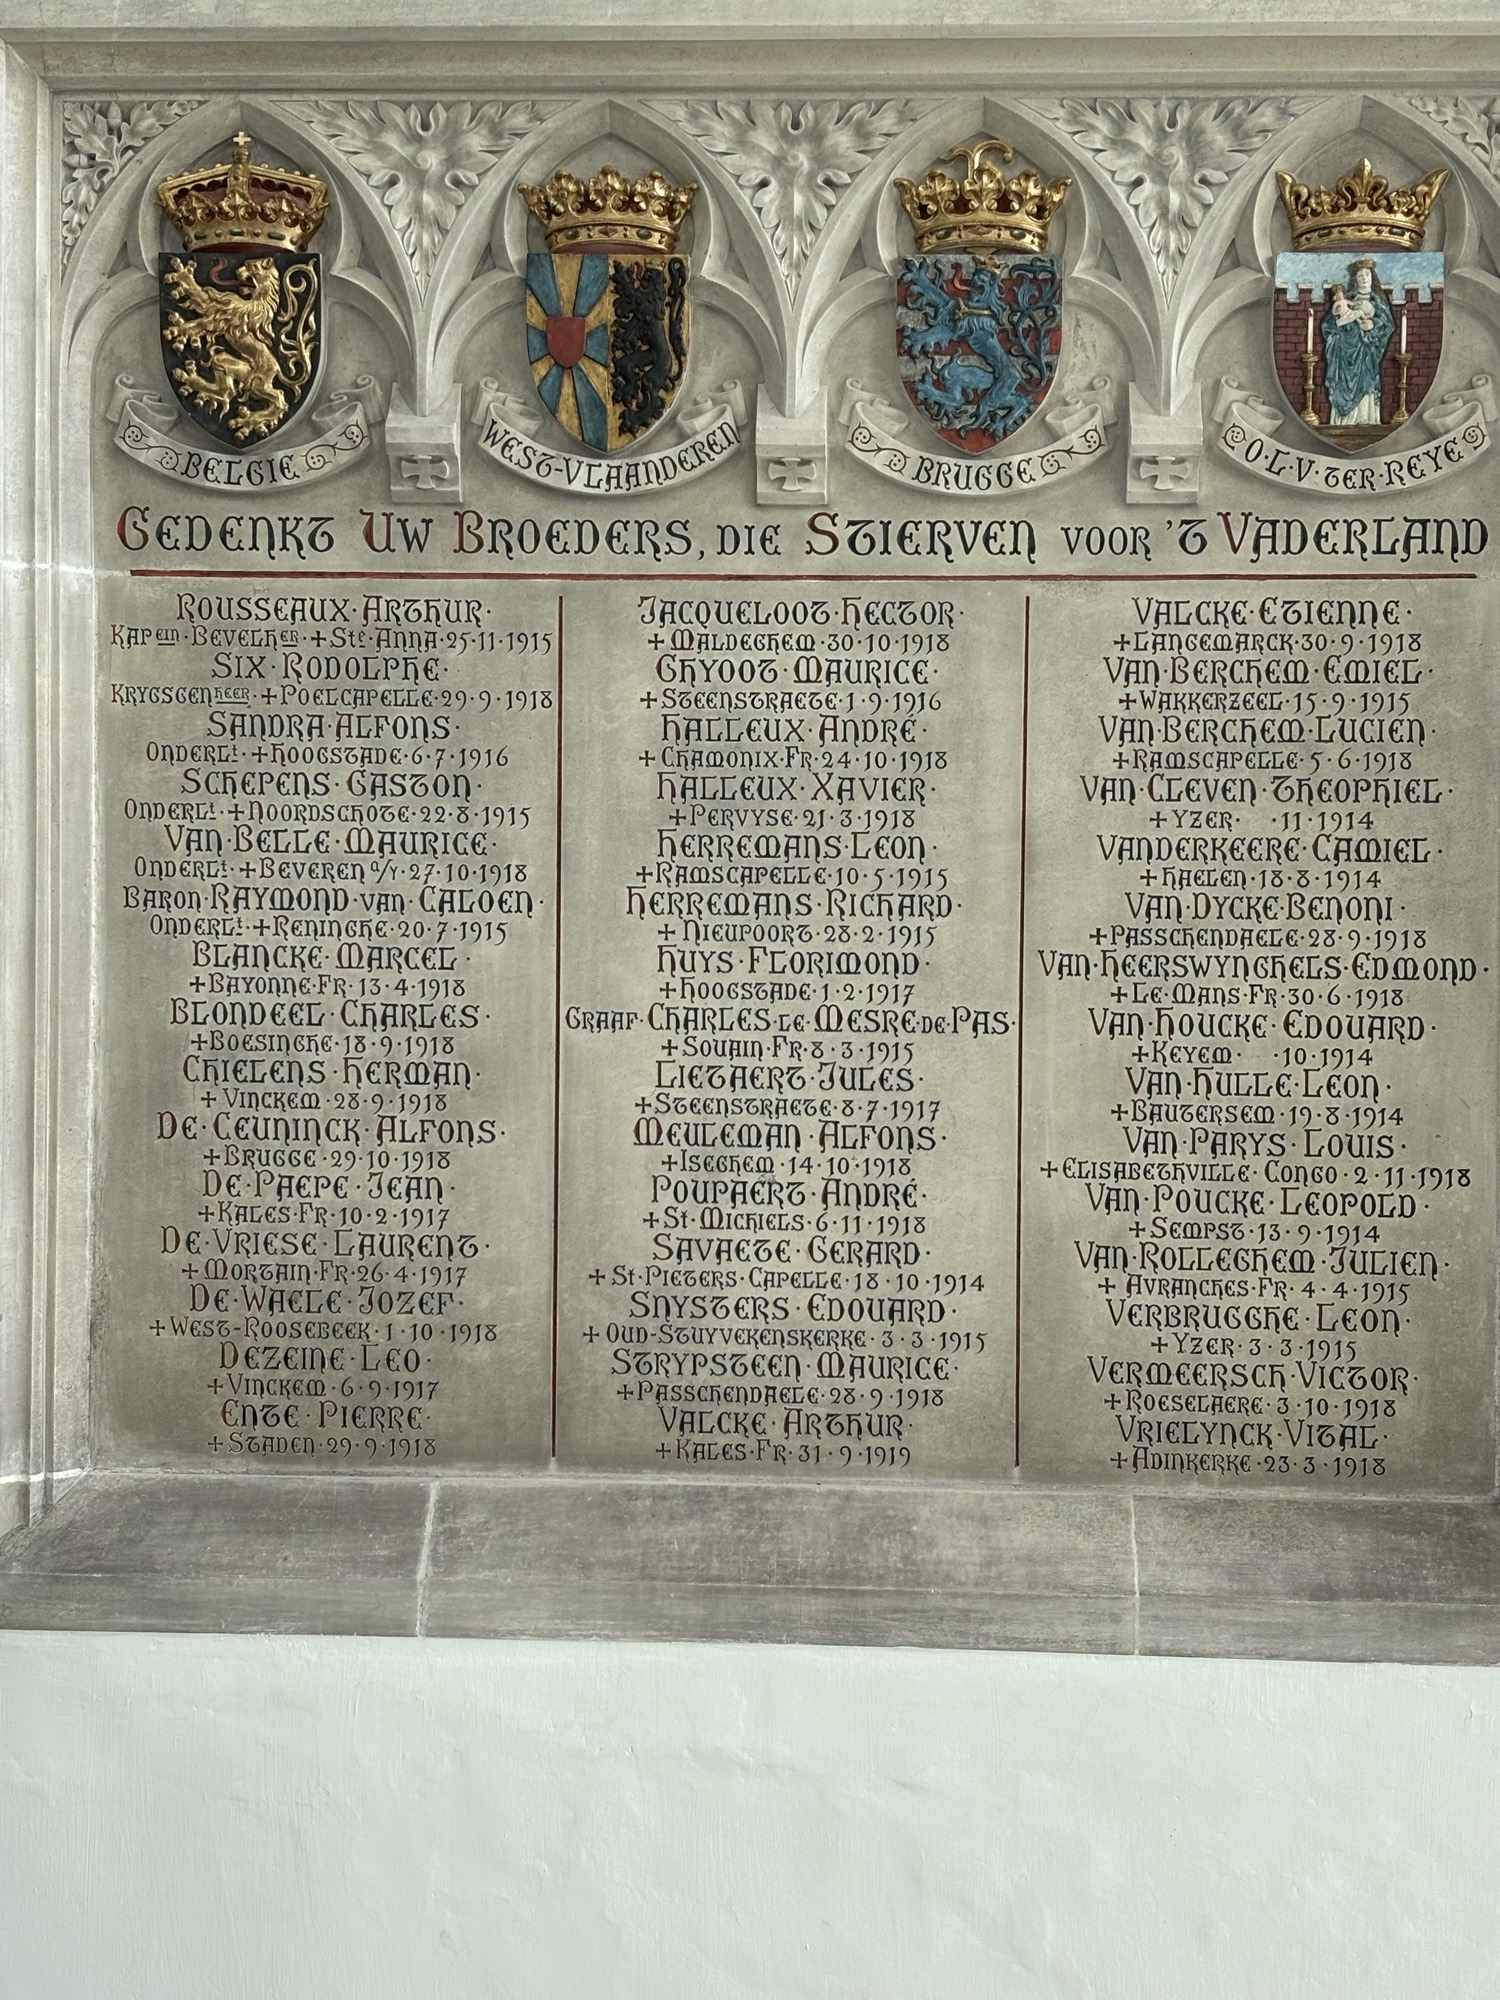 BELGIE
WEST-VLAANDEREN
BRUGGE
O·L·V·TER·REYE
GEDENKT UW BROEDERS, DIE STIERVEN VOOR 'T VADERLAND
ROUSSEAUX·ARTHUR·
KAPEIN·BEVELHER·+STE·ANNA·25·11·1915
SIX·RODOLPHE·
KRYGSGENHEER·+POELCAPELLE·29·9·1918
SANDRA·ALFONS·
ONDERLT·+HOOGSTADE·6·7·1916
SCHEPENS·GASTON·
ONDERLT·+NOORDSCHOTE·22·8·1915
VAN·BELLE·MAURICE·
ONDERLT·+BEVEREN a/Y·27·10·1918
BARON·RAYMOND·VAN·CALOEN·
ONDERLT·+RENINGHE·20·7·1915
BLANCKE·MARCEL·
+BAYONNE·FR·13·4·1918
BLONDEEL·CHARLES·
+BOESINGHE·18·9·1918
CHIELENS·HERMAN·
+VINCKEM·28·9·1918
DE·CEUNINCK·ALFONS·
+BRUGGE·29·10·1918
DE·PAEPE·JEAN·
+KALES·FR·10·2·1917
DE·VRIESE·LAURENT·
+MORTAIN·FR·26·4·1917
DE·WAELE·JOZEF·
+WEST-ROOSEBEEK·1·10·1918
DEZEINE·LEO·
+VINCKEM·6·9·1917
ENTE·PIERRE·
+STADEN·29·9·1918
JACQUELOOT·HECTOR·
+MALDEGHEM·30·10·1918
GHYOOT·MAURICE·
+STEENSTRAETE·1·9·1916
HALLEUX·ANDRÉ·
+CHAMONIX·FR·24·10·1918
HALLEUX·XAVIER·
+PERVYSE·21·3·1918
HERREMANS·LEON·
+RAMSCAPELLE·10·5·1915
HERREMANS·RICHARD·
+NIEUPOORT·28·2·1915
HUYS·FLORIMOND·
+HOOGSTADE·1·2·1917
GRAAF·CHARLES·LE·MESRE·DE·PAS·
+SOUAIN·FR·8·3·1915
LIETAERT·JULES·
+STEENSTRAETE·8·7·1917
MEULEMAN·ALFONS·
+ISEGHEM·14·10·1918
POUPAERT·ANDRÉ·
+ST·MICHIELS·6·11·1918
SAVAETE·GERARD·
+ST·PIETERS·CAPELLE·18·10·1914
SNYSTERS·EDOUARD·
+OUD-STUYVEKENSKERKE·3·3·1915
STRYPSTEEN·MAURICE·
+PASSCHENDAELE·28·9·1918
VALCKE·ARTHUR·
+KALES·FR·31·9·1919
VALCKE·ETIENNE·
+LANGEMARCK·30·9·1918
VAN·BERCHEM·EMIEL·
+WAKKERZEEL·15·9·1915
VAN·BERCHEM·LUCIEN·
+RAMSCAPELLE·5·6·1918
VAN·CLEVEN·THEOPHIEL·
+YZER· ·11·1914
VANDERKEERE·CAMIEL·
+HAELEN·18·8·1914
VAN·DYCKE·BENONI·
+PASSCHENDAELE·28·9·1918
VAN·HEERSWYNGHELS·EDMOND·
+LE·MANS·FR·30·6·1918
VAN·HOUCKE·EDOUARD·
+KEYEM· ·10·1914
VAN·HULLE·LEON·
+BAUTERSEM·19·8·1914
VAN·PARYS·LOUIS·
+ELISABETHVILLE·CONGO·2·11·1918
VAN·POUCKE·LEOPOLD·
+SEMPST·13·9·1914
VAN·ROLLEGHEM·JULIEN·
+AVRANCHES·FR·4·4·1915
VERBRUGGHE·LEON·
+YZER·3·3·1915
VERMEERSCH·VICTOR·
+ROESELAERE·3·10·1918
VRIELYNCK·VITAL·
+ADINKERKE·23·3·1918